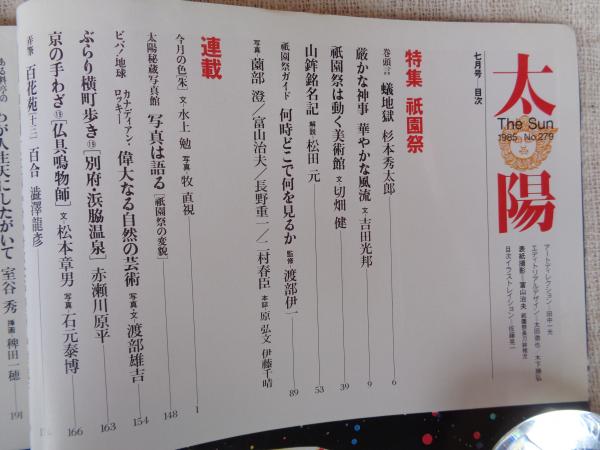 太陽
The Sun
1985 No.279
七月号—目次
アートディレクション—田中一光
エディトリアルデザイン—太田徹也 木下勝弘
表紙撮影—富山治夫 祇園祭長刀鉾稚児
目次イラストレイション—佐藤晃一
特集 祇園祭
巻頭言 蟻地獄 杉本秀太郎 6
厳かな神事 華やかな風流 文 吉田光邦 9
祇園祭は動く美術館 文 切畑 健 39
山鉾銘名記 解説 松田 元 53
祇園祭ガイド 何時どこで何を見るか 監修 渡部伊一 89
写真 薗部 澄/富山治夫/長野重一/二村春臣 本誌 原 弘文 伊藤千晴
連載
今月の色[朱] 文 水上 勉 写真 牧 直視 1
太陽秘蔵写真館 写真は語る[祇園祭の変貌] 148
ビバ!地球 カナディアン・ロッキー 偉大なる自然の芸術 写真・文 渡部雄吉 154
ぶらり横町歩き⑲[別府・浜脇温泉] 赤瀬川原平 163
京の手わざ⑲[仏具鳴物師] 文 松本章男 写真 石元泰博 166
百花苑[十三] 百合 澁澤龍彦
ある料亭の わが人生天にしたがいて 室谷 秀 挿画 稗田一穂 191